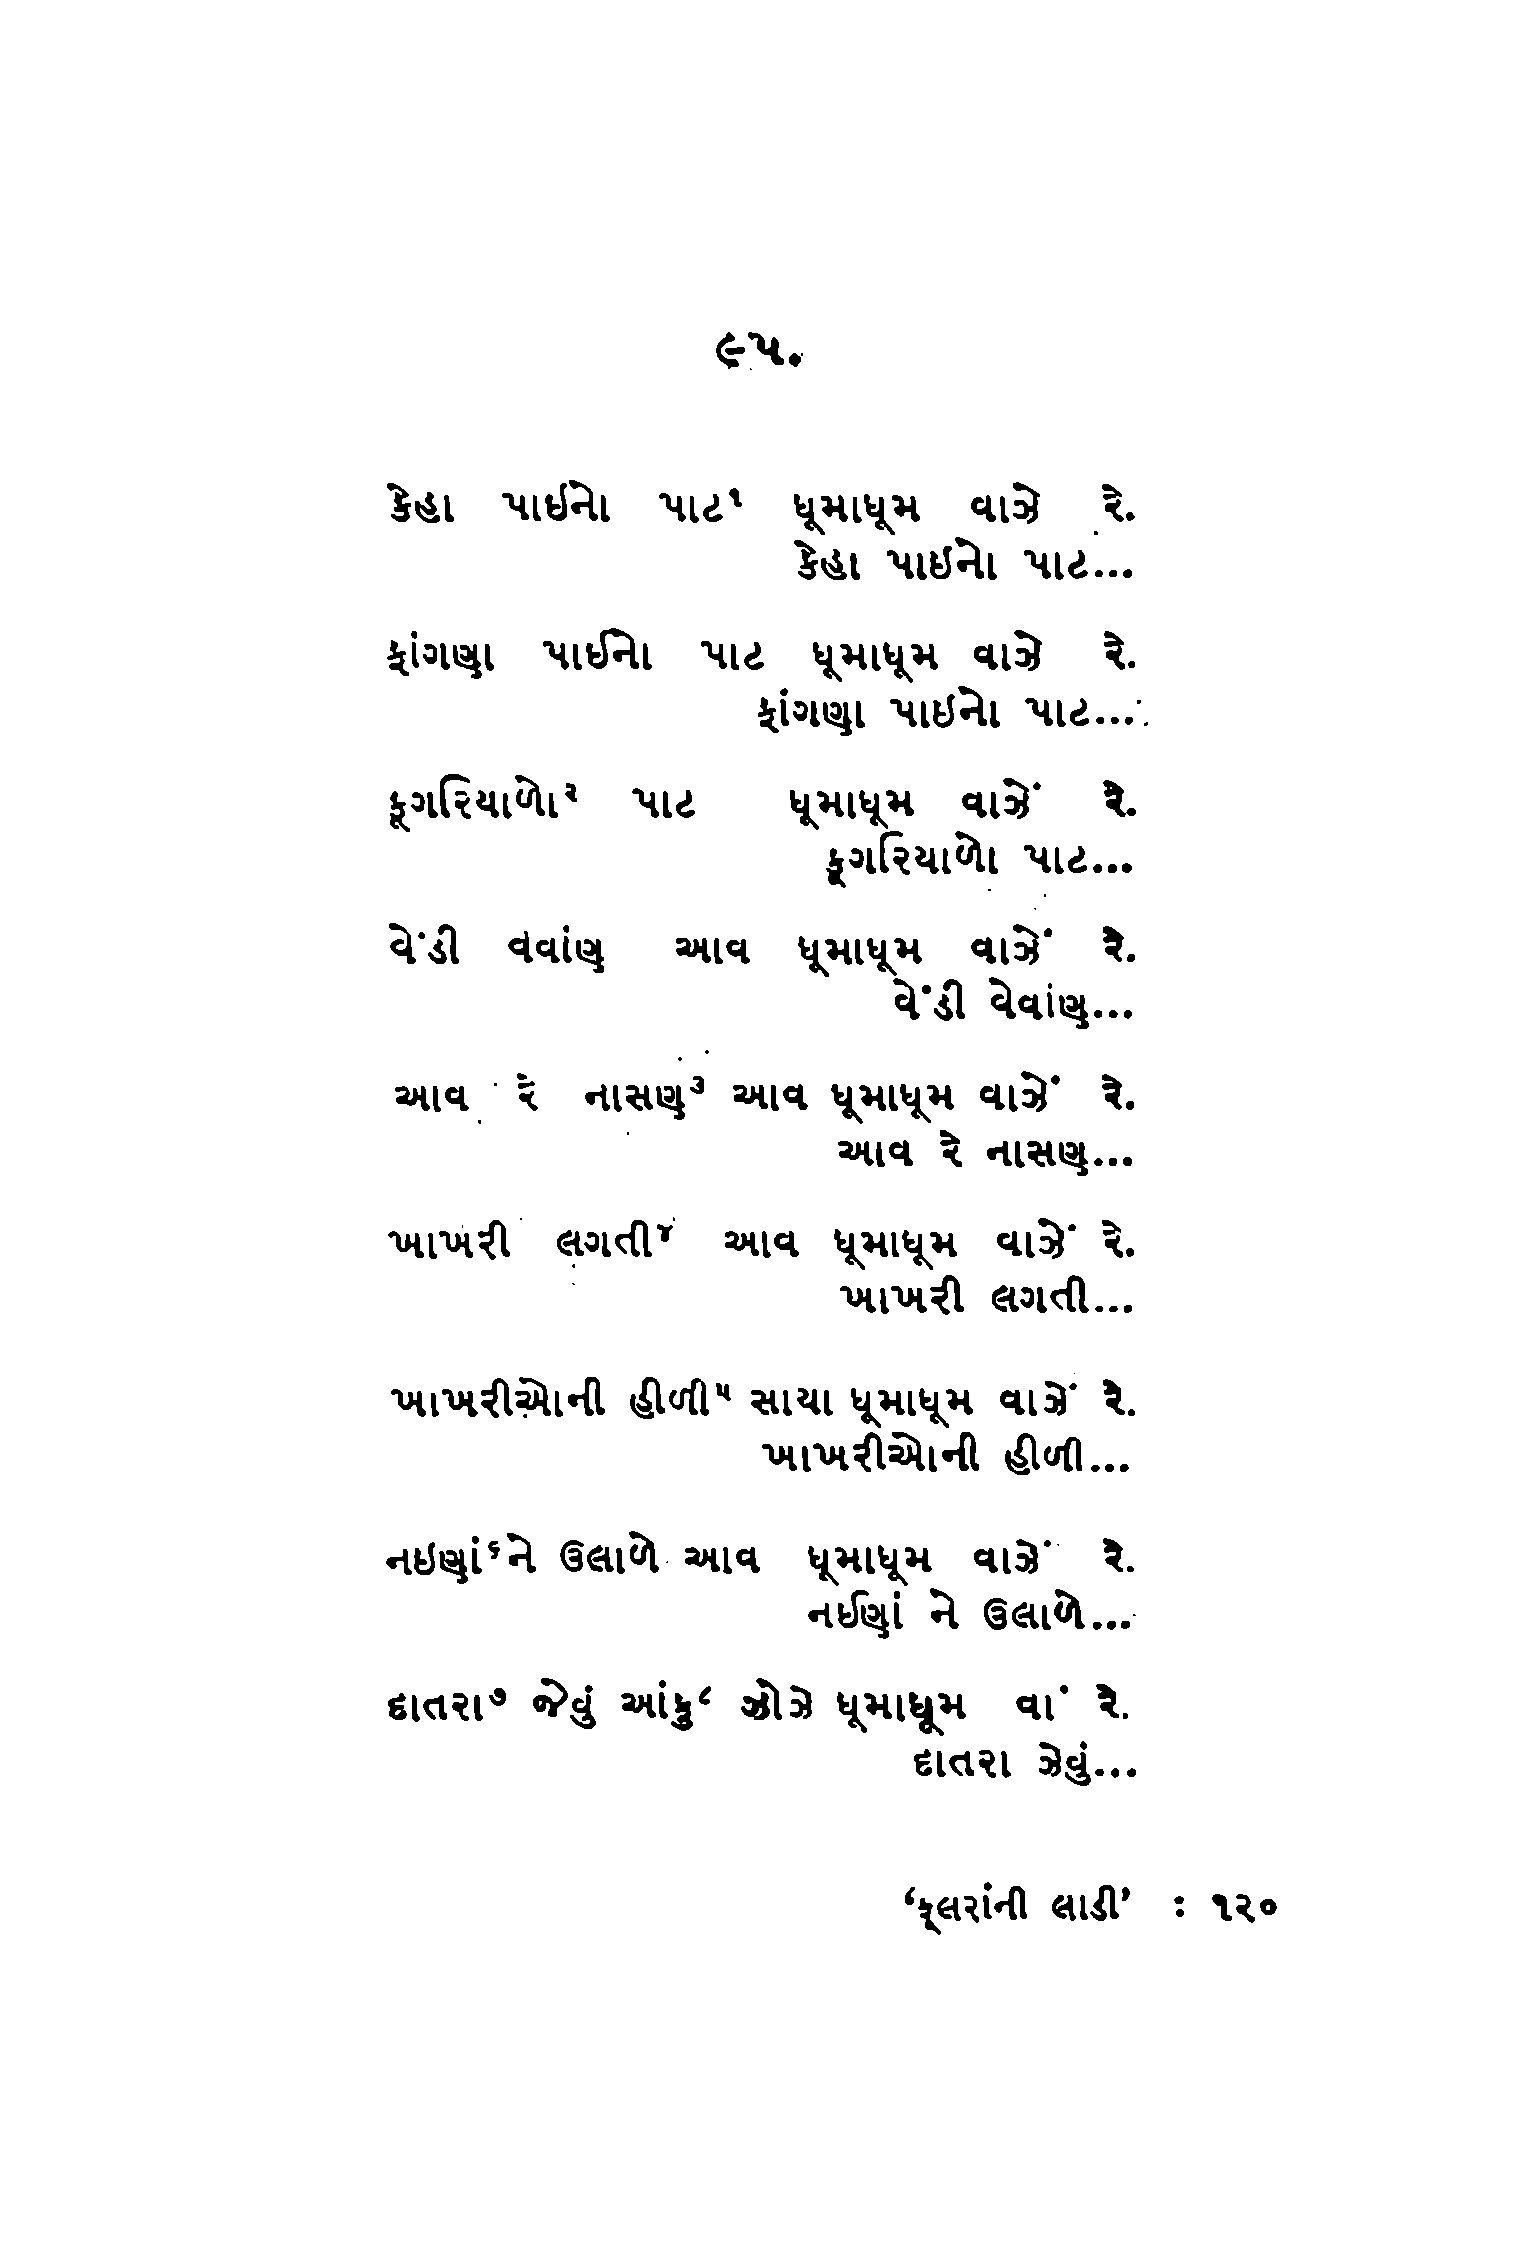 ૯૫.
કેહા પાઈનો પાટ૧ ધૂમાધૂમ વાઝે રે.
કેહા પાઇનો પાટ...
ફાંગણા પાઈનો પાટ ધૂમાધૂમ વાઝે રે.
ફાંગણા પાઇનો પાટ...
ફૂગરિયાળો૨ પાટ ધૂમાધૂમ વાઝેં રે.
ફૂગરિયાળો પાટ...
વેંડી વવાંણ આવ ધૂમાધૂમ વાઝેં રે.
વેંડી વેવાંણ...
આવ રે નાસણ૩ આવ ધૂમાધૂમ વાઝેં રે.
આવ રે નાસણ...
ખાખરી લગતી૪ આવ ધૂમાધૂમ વાઝેં રે.
ખાખરી લગતી...
ખાખરીઓની હીળી૫ સાયા ધૂમાધૂમ વાઝેં રે.
ખાખરીઓની હીળી...
નઇણાં૬ને ઉલાળે આવ ધૂમાધૂમ વાઝેં રે.
નઈણાં ને ઉલાળે...
દાતરા૭ જેવું આંકુ૮ ઝોઝે ધૂમાધૂમ વાં રે.
દાતરા ઝેવું...
‘ફૂલરાંની લાડી’ : ૧૨૦